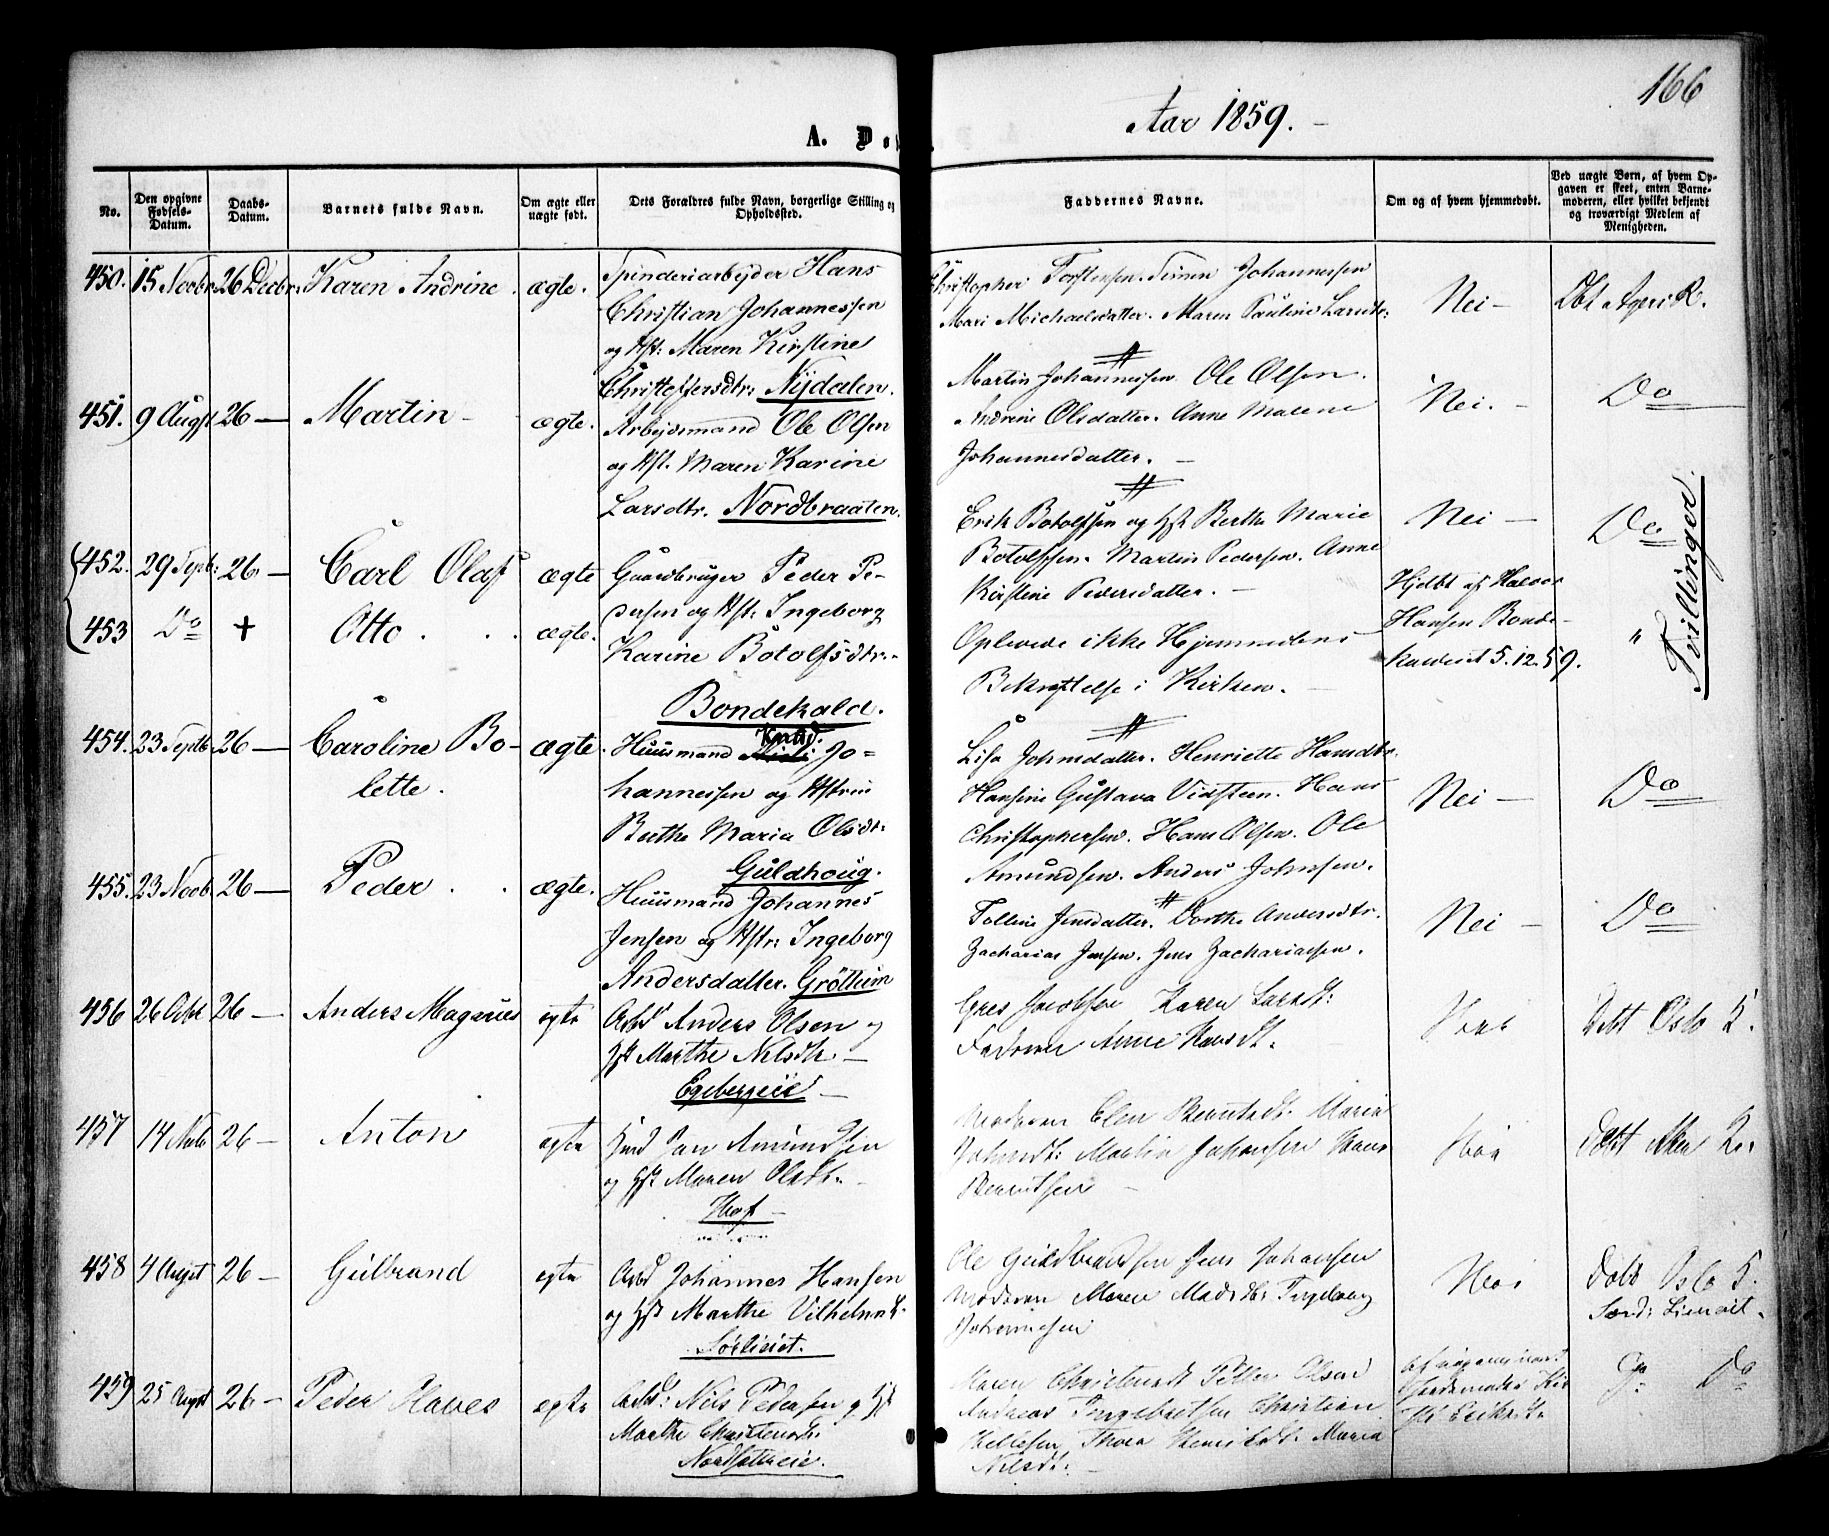 166
Aar 1859.
A. Dø
No.
Den opgivne Fødsels-Datum.
Daabs-Datum.
Barnets fulde Navn.
Om ægte eller uægte født.
Dets Forældres fulde Navn, borgerlige Stilling og Opholdssted.
Faddernes Navne.
Om og af hvem hjemmedøbt.
Ved uægte Børn, af hvem Opgaven er skeet, enten Barnemoderen, eller hvilket bekjendt og troværdigt Medlem af Menigheden.
450. 15 Novbr. 26 Decbr. Karen Andrine. ægte. Spinderiarbejder Hans
Christian Johannessen
og Hst: Maren Kirstine
Christoffersdtr: Nijdalen.
Christopher Torstensen. Simen Johannessen
Mari Michaelsdatter. Maren Pauline Larsdtr:
Nei — Dbt Agers K.
451. 9 Augst 26 — Martin — ægte. Arbejdsmand Ole Olsen
og Hst. Maren Karine
Larsdtr. Nordbraaten.
Martin Johannessen. Ole Olsen.
Andrine Olsdatter. Anne Malene
Johannesdatter. —
Nei. — Do
452. 29 Septb: 26 — Carl Olaf ægte Gaardbruger Peder Pe-
453 Do + Otto . . ægte. dersen og Hst: Ingeborg
Karine Botolfsdtr:
Bondekald.
Erik Botolfsen og Hst Berthe Marie
Botolfsen. Martin Pedersen. Anne
Kirstine Pedersdatter. —
Oplevede ikke Hjemmedaabens
Bekræftelse i Kirken. —
Nei —
Hjdbt af Halvor
Hansen Bonde-
kaldeiet 5.12.59.
Do
"
Tvillinger.
454. 23 Septb. 26 — Caroline Bo-
lette.
ægte. Huusmand Knud. Jo-
hannessen og Hstru
Berthe Maria Olsdtr:
Guldhoug.
Lisa Johnsdatter. Henriette Hansdtr.
Hansine Gustava Vidsteen. Hans
Christophersen. Hans Olsen. Ole
Amundsen. Anders Johnsen.
Nei — Do
455. 23 Novb. 26 — Peder . . ægte. Huusmand Johannes
Jensen og Hstr: Ingeborg
Andersdatter. Gröttum
Golline Jensdatter. Dorthe Andersdtr.
Zacharias Jensen. Jens Zachariassen.
Nei — Do
456 26 Octbr 26 — Anders Magnus ægte Arbd Anders Olsen og
Hst Marthe Nilsdtr. —
Egebergeie —
Jacobsen Karen Larsdt:
Faderen Anne Hansdt.
Nei Døbt Oslo K.
457 14 Novb 26 — Anton ægte Hmd Jan Amundsen
og Hst Maren Olsdt. —
Hof —
Moderen Elen Berntsdt. Maria
Johnsdt: Martin Johansen Hans
Berntsen —
Nei Døbt Aker K.
458 4 Augst 26 — Gulbrand ægte Arbd Johannes Hansen
og Hst Marthe Vilhelmsdt.
Sörlieiet.
Ole Guldbrandsen Jens Johansen
Moderen Maren Madsdt: Ingeborg
Johannesen
Nei Døbt Oslo K.
459 25 Augst 26 — Peder Claves ægte Arbd: Nils Pedersen og Hst
Marthe Christensdt.
Maren Christensdt Petter Olsen
Andreas Ingebretsen Christian
Thora Maria
Nilsdt: —
Do